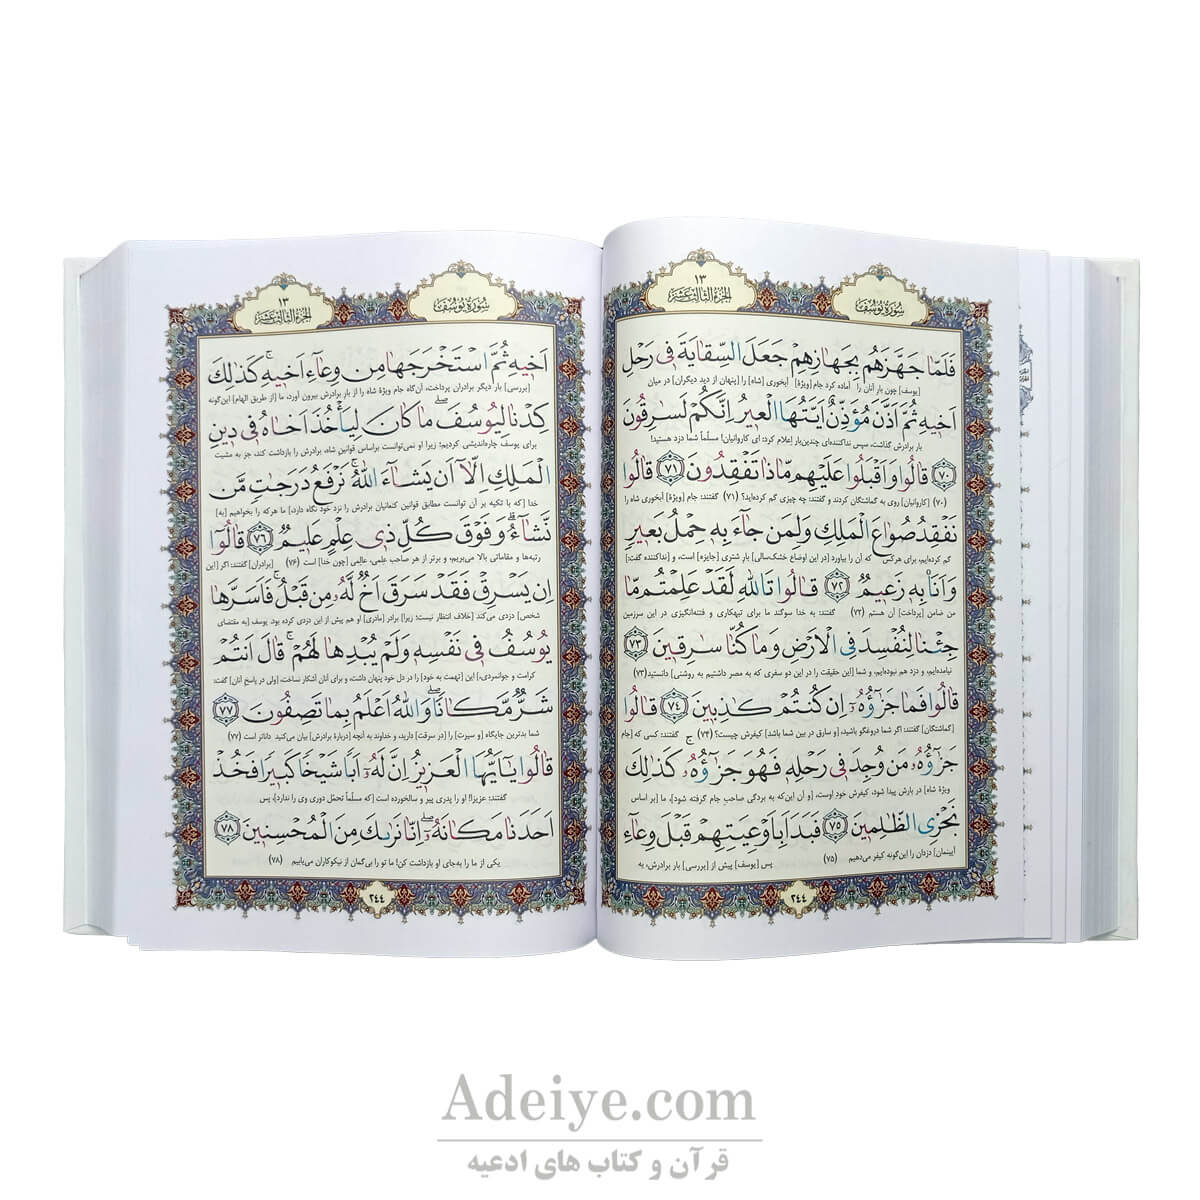 ۱۳
الجزء الثالث عشر
سورة يوسف
فَلَمّا جَهَّزَهُم بِجَهازِهِم جَعَلَ السِّقايَةَ في رَحلِ
[یوسف] چون بار آنان را آماده کرد جام [ویژهٔ] آبخوری [شاه] را [پنهان از دید دیگران] در میان
اَخيهِ ثُمَّ اَذَّنَ مُؤَذِّنٌ اَيَّتُهَا العيرُ اِنَّكُم لَسارِقونَ
بار برادرش گذاشت، سپس نداکننده‌ای چندین‌بار اعلام کرد: ای کاروانیان! مسلّماً شما دزد هستید!
﴿۷۰﴾ قالوا وَ اَقبَلوا عَلَيهِم ماذا تَفقِدونَ ﴿۷۱﴾ قالوا
(۷۰) [کاروانیان] روی به گماشتگان کردند و گفتند: چه چیزی گم کرده‌اید؟ (۷۱) گفتند: جام [ویژهٔ] آبخوری شاه را
نَفقِدُ صُواعَ المَلِكِ وَلِمَن جاءَ بِه حِملُ بَعيرٍ
گم کرده‌ایم، برای هرکس که آن را بیاورد [در این اوضاع خشک‌سالی] بارِ شتری [جایزه] است، و [نداکننده گفت:]
وَ اَنَا بِه زَعيمٌ ﴿۷۲﴾ قالوا تَاللهِ لَقَد عَلِمتُم ما
من ضامن [پرداخت] آن هستم (۷۲) گفتند: به خدا سوگند ما برای تبهکاری و فتنه‌انگیزی در این سرزمین
جِئنا لِنُفسِدَ فِي الاَرضِ وَ ما كُنّا سارِقينَ ﴿۷۳﴾
نیامده‌ایم، و دزد هم نبوده‌ایم، و شما [این حقیقت را در این دو سفری که به مصر داشتیم به روشنی] دانستید (۷۳)
قالوا فَما جَزاؤُهُ اِن كُنتُم كاذِبينَ ﴿۷۴﴾ قالوا
[گماشتگان] گفتند: اگر شما دروغگو باشید، [و سارق در بین شما باشد] کیفرش چیست؟ (۷۴) گفتند: کسی که [جام
جَزاؤُهُ مَن وُجِدَ في رَحلِه فَهُوَ جَزاؤُهُ كَذالِكَ
ویژهٔ شاه] در بارش پیدا شود، کیفرش خود اوست، [و آن این‌که به بردگی صاحبِ جام گرفته شود]، ما [بر اساس
نَجزِي الظّالِمينَ ﴿۷۵﴾ فَبَدَاَ بِاَوعِيَتِهِم قَبلَ وِعاءِ
آیینمان] دزدان را این‌گونه کیفر می‌دهیم (۷۵) پس [یوسف] پیش از [بررسی] بارِ برادرش، به
۲۴۴
۱۳
الجزء الثالث عشر
سورة يوسف
اَخيهِ ثُمَّ استَخرَجَها مِن وِعاءِ اَخيهِ كَذالِكَ
[بررسی] بار دیگر برادران پرداخت، آن‌گاه جام ویژهٔ شاه را از بار برادرش بیرون آورد، ما [از طریق الهام] این‌گونه
كِدنا لِيوسُفَ ما كانَ لِيَأخُذَ اَخاهُ في دينِ
برای یوسف چاره‌اندیشی کردیم؛ زیرا او نمی‌توانست براساس قوانینِ شاه، برادرش را بازداشت کند، جز به مشیت
المَلِكِ اِلّا اَن يَشاءَ اللهُ نَرفَعُ دَرَجاتٍ مَن
خدا [که با تکیه بر آن توانست مطابق قوانین کنعانیان برادرش را نزد خود نگاه دارد]، ما هرکه را بخواهیم [به]
نَشاءُ وَ فَوقَ كُلِّ ذي عِلمٍ عَليمٌ ﴿۷۶﴾ قالوا
رتبه‌ها و مقاماتی بالا می‌بریم، و برتر از هر صاحب علمی، عالمی [چون خدا] است (۷۶) [برادران] گفتند: اگر [این
اِن يَسرِق فَقَد سَرَقَ اَخٌ لَهُ مِن قَبلُ فَاَسَرَّها
شخص] دزدی می‌کند [خلاف انتظار نیست؛ زیرا] برادر [مادری] او هم پیش از این دزدی کرده بود. یوسف [به مقتضای
يوسُفُ في نَفسِه وَلَم يُبدِها لَهُم قالَ اَنتُم
کرامت و جوانمردی،] این [تهمت به خود] را در دل خود پنهان داشت، و برای آنان آشکار نساخت، [ولی در پاسخ آنان] گفت:
شَرٌّ مَكانًا وَاللهُ اَعلَمُ بِما تَصِفونَ ﴿۷۷﴾
شما بدترین جایگاه [و سیرت] را [در سرقت] دارید، و خداوند به آنچه [دربارهٔ برادرش] بیان می‌کنید داناتر است (۷۷)
قالوا يا اَيُّهَا العَزيزُ اِنَّ لَهُ اَبًا شَيخًا كَبيرًا فَخُذ
گفتند: عزیزا! او را پدری پیر و سالخورده است [که مسلّماً تحمّل دوری وی را ندارد]، پس
اَحَدَنا مَكانَهُ اِنّا نَراكَ مِنَ المُحسِنينَ ﴿۷۸﴾
یکی از ما را به‌جای او بازداشت کن؛ ما تو را بی‌گمان از نیکوکاران می‌یابیم (۷۸)
۲۴۴
Adeiye.com
قرآن و کتاب های ادعیه